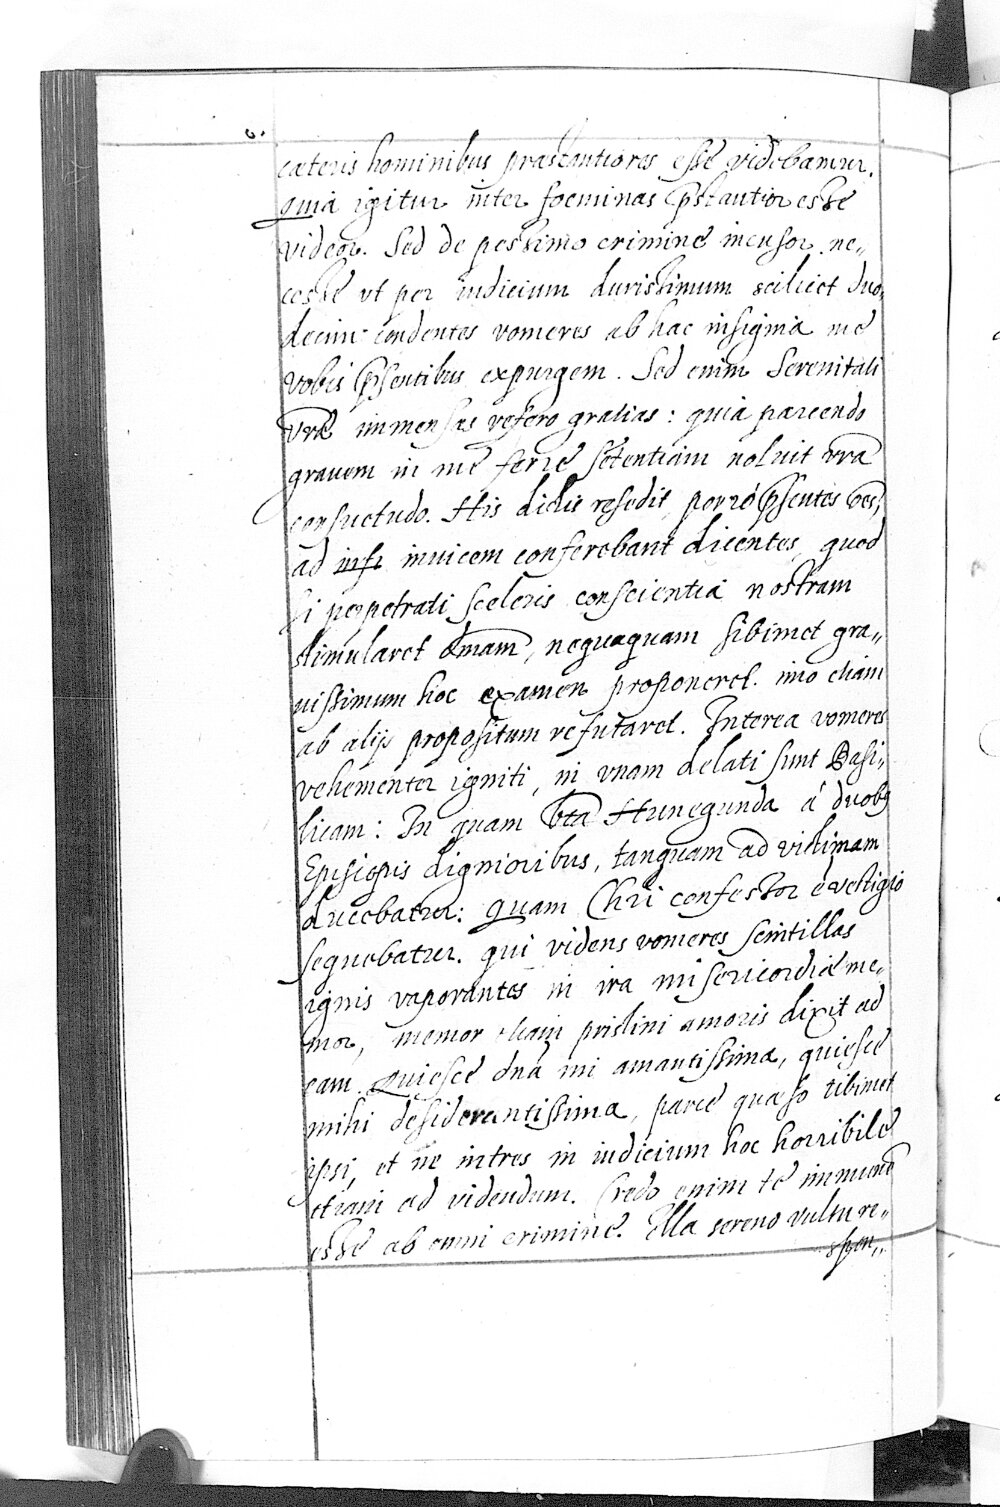 6.
cæteris hominibus præstantiores esse videbamur.
quia igitur inter foeminas p̄stantior esse
videor. Sed de pessimo crimine incusor. ne„
cesse vt per iudicium durissimum scilicet duo„
decim candentes vomeres ab hac insignia me
vobis p̄sentibus expurgem. Sed enim Serenitati
vr̄e immensas refero gratias: quia parcendo
grauem in me ferre sētentiam noluit vr̄a
consuetudo. His dictis resedit, porró p̄sentes oēs,
ad inuicem conferebant dicentes, quod
si perpetrati sceleris conscientia nostram
stimularet dn̄am, nequaquam sibimet gra„
uissimum hoc examen proponeret. imo etiam
ab alijs propositum refutaret. Interea vomeres
vehementer igniti, in vnam delati sunt Basi„
licam: In quam bt̄a Hunegunda á duobꝫ
Episcopis dignioribus, tanquam ad victimam
ducebatur: quam Chr̄i confessor é vestigio
sequebatur. qui videns vomeres scintillas
ignis vaporantes in ira misericordiæ me„
mor, memor etiam pristini amoris dixit ad
eam. Quiesce dn̄a mi amantissima, quiesce
mihi desiderantissima, parce quæso tibimet
ipsi, et ne intres in iudicium hoc horribile
etiam ad videndum. Credo enim te immunē
esse ab omni crimine. Illa sereno vultu re„
spon„